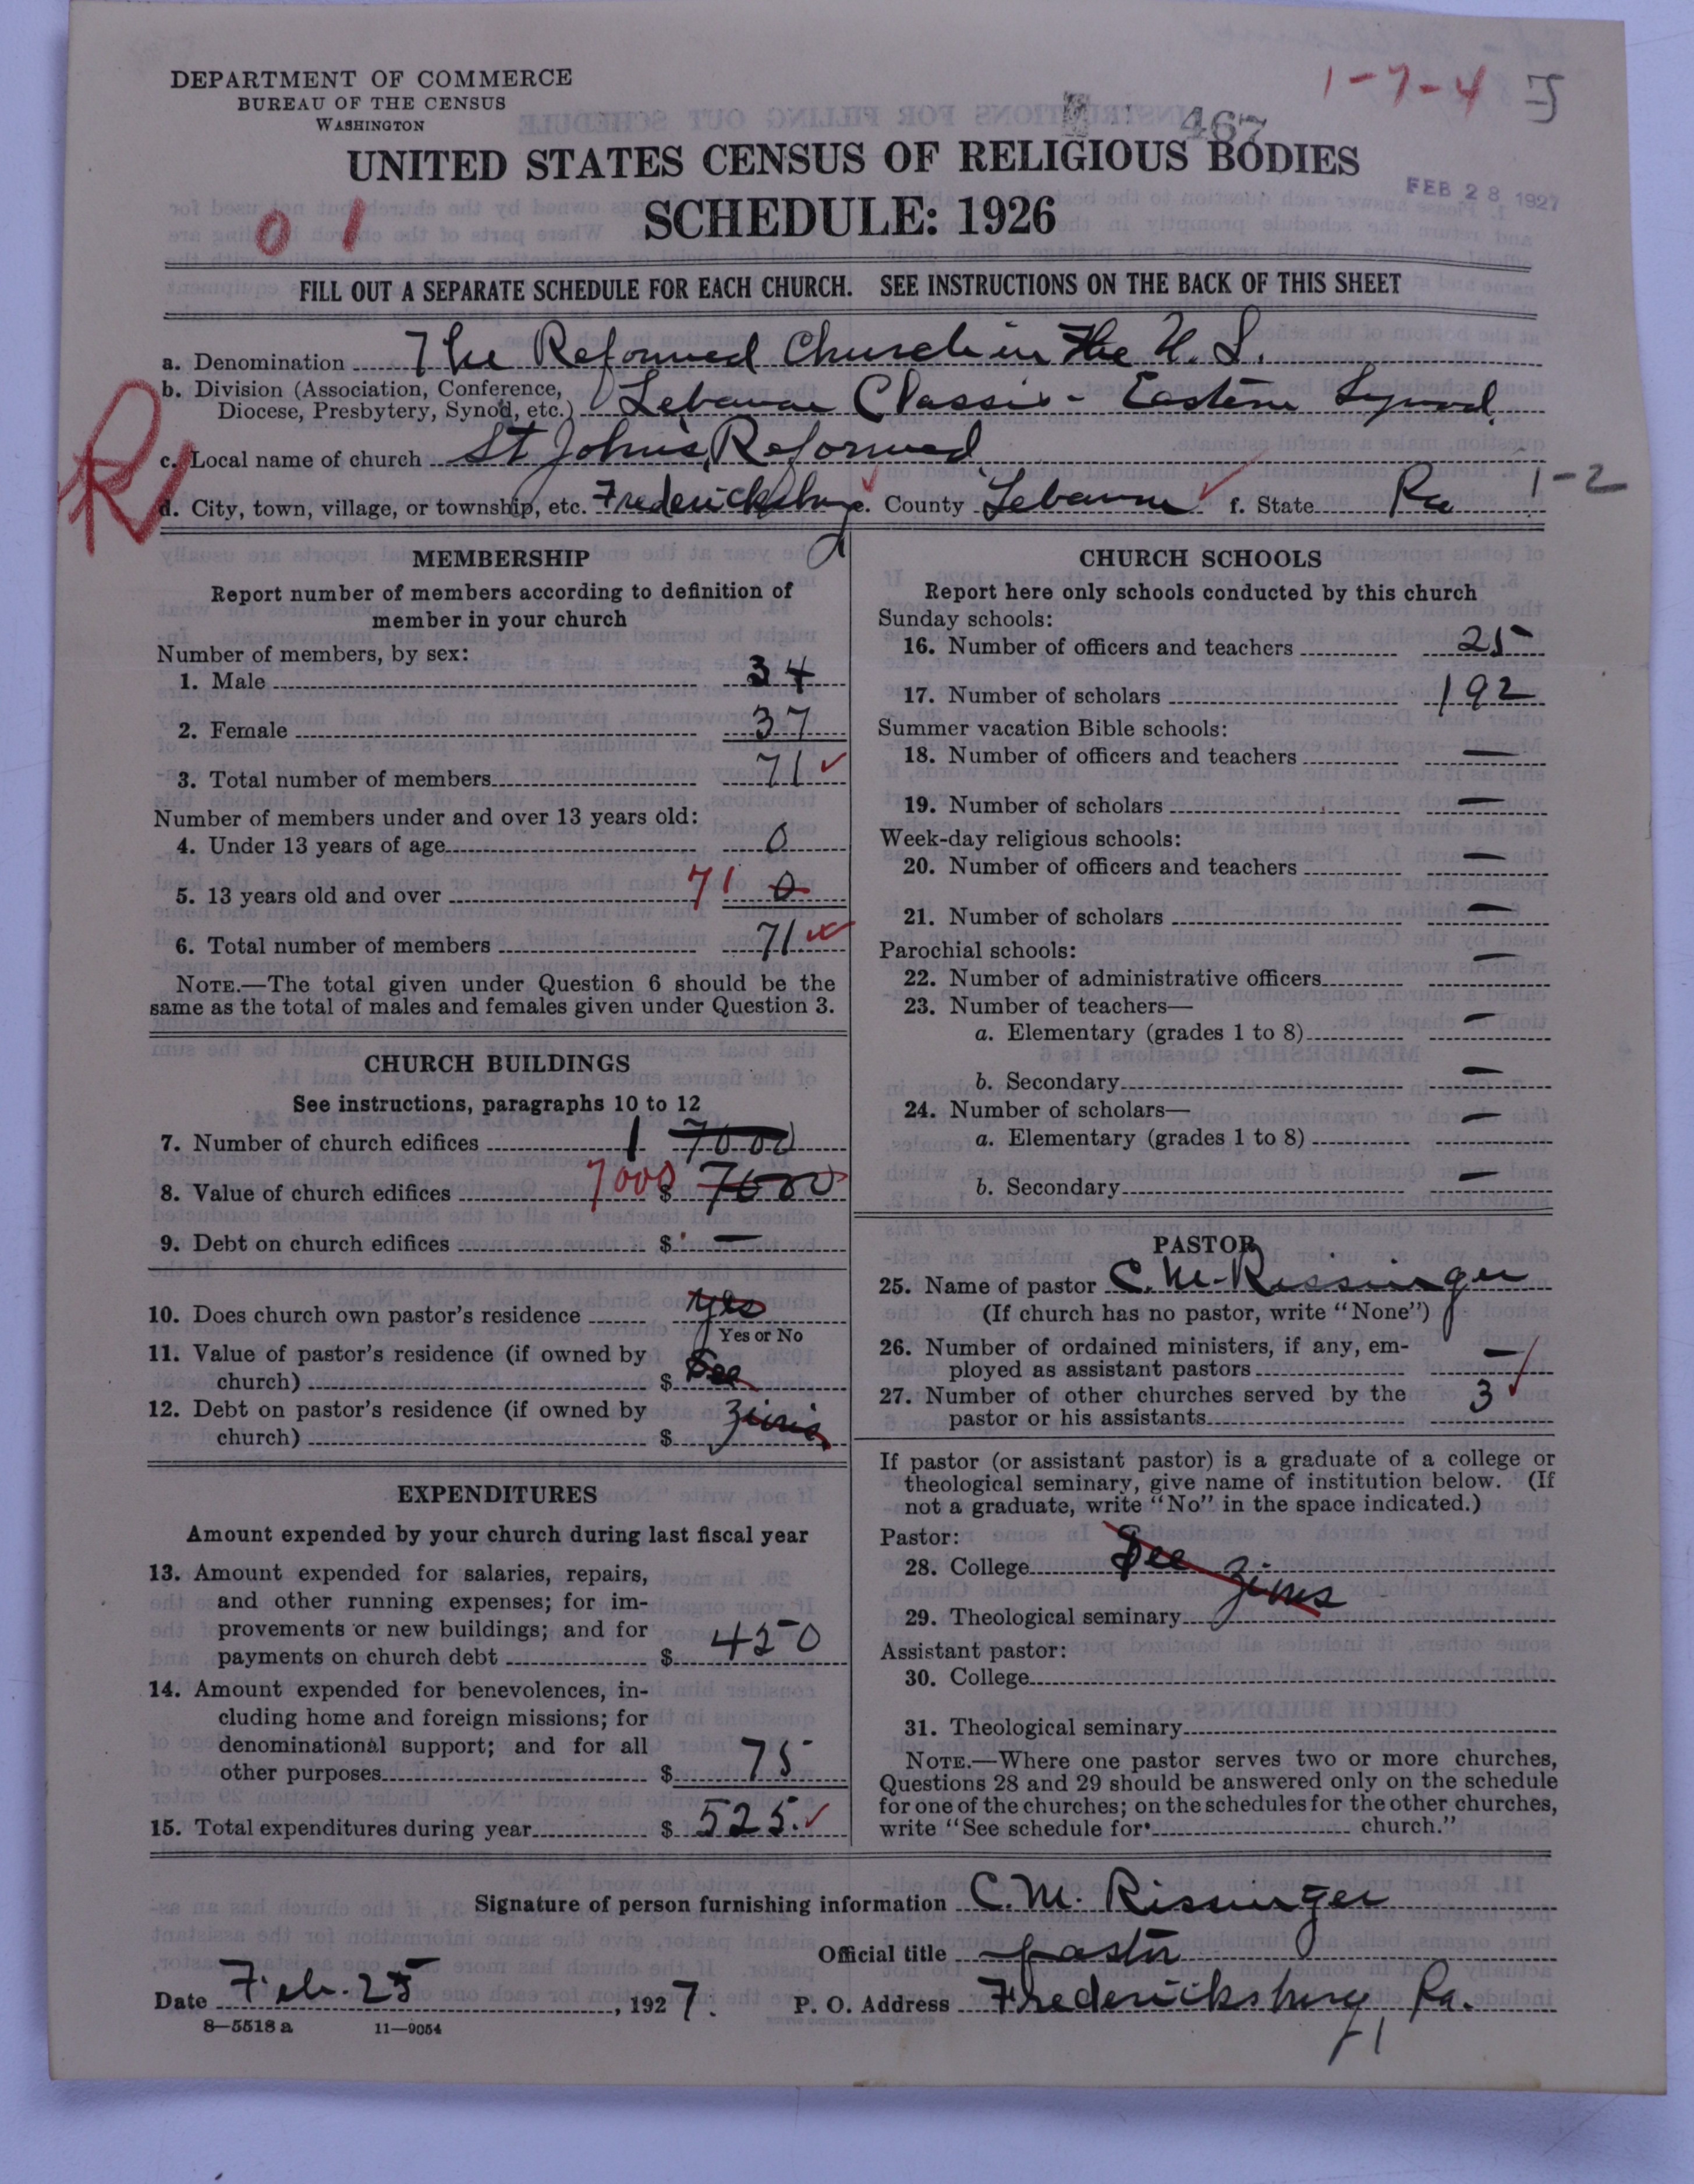 DEPARTMENT OF COMMERCE
BUREAU OF THE CENSUS
WASHINGTON
1-7-4
467
UNITED STATES CENSUS OF RELIGIOUS BODIES
FEB 28 1927
SCHEDULE: 1926
0 1
FILL OUT A SEPARATE SCHEDULE FOR EACH CHURCH. SEE INSTRUCTIONS ON THE BACK OF THIS SHEET
a. Denomination The Reformed Church in the U. S.
b. Division (Association, Conference, Diocese, Presbytery, Synod, etc.) Lebanon Classis - Eastern Synod
c. Local name of church St John's Reformed
d. City, town, village, or township, etc. Fredericksburg e. County Lebanon f. State Pa 1-2
R
MEMBERSHIP
Report number of members according to definition of
member in your church
Number of members, by sex:
1. Male 34
2. Female 37
3. Total number of members 71
Number of members under and over 13 years old:
4. Under 13 years of age 0
5. 13 years old and over 71 0
6. Total number of members 71
NOTE.—The total given under Question 6 should be the
same as the total of males and females given under Question 3.
CHURCH BUILDINGS
See instructions, paragraphs 10 to 12
7. Number of church edifices 1 7000
8. Value of church edifices 7000 $ 7000
9. Debt on church edifices $ —
10. Does church own pastor's residence yes
Yes or No
11. Value of pastor's residence (if owned by
church) $ See
12. Debt on pastor's residence (if owned by
church) $ Zions
EXPENDITURES
Amount expended by your church during last fiscal year
13. Amount expended for salaries, repairs,
and other running expenses; for im-
provements or new buildings; and for
payments on church debt $ 450
14. Amount expended for benevolences, in-
cluding home and foreign missions; for
denominational support; and for all
other purposes $ 75
15. Total expenditures during year $ 525.
CHURCH SCHOOLS
Report here only schools conducted by this church
Sunday schools:
16. Number of officers and teachers 25
17. Number of scholars 192
Summer vacation Bible schools:
18. Number of officers and teachers —
19. Number of scholars —
Week-day religious schools:
20. Number of officers and teachers —
21. Number of scholars —
Parochial schools:
22. Number of administrative officers —
23. Number of teachers—
a. Elementary (grades 1 to 8) —
b. Secondary —
24. Number of scholars—
a. Elementary (grades 1 to 8) —
b. Secondary —
PASTOR
25. Name of pastor C. M. Rissinger
(If church has no pastor, write "None")
26. Number of ordained ministers, if any, em-
ployed as assistant pastors —
27. Number of other churches served by the
pastor or his assistants 3
If pastor (or assistant pastor) is a graduate of a college or
theological seminary, give name of institution below. (If
not a graduate, write "No" in the space indicated.)
Pastor:
28. College See
29. Theological seminary Zions
Assistant pastor:
30. College
31. Theological seminary
NOTE.—Where one pastor serves two or more churches,
Questions 28 and 29 should be answered only on the schedule
for one of the churches; on the schedules for the other churches,
write "See schedule for church."
Signature of person furnishing information C. M. Rissinger
Official title pastor
Date Feb. 25, 1927. P. O. Address Fredericksburg Pa.
8—5518 a 11—9054